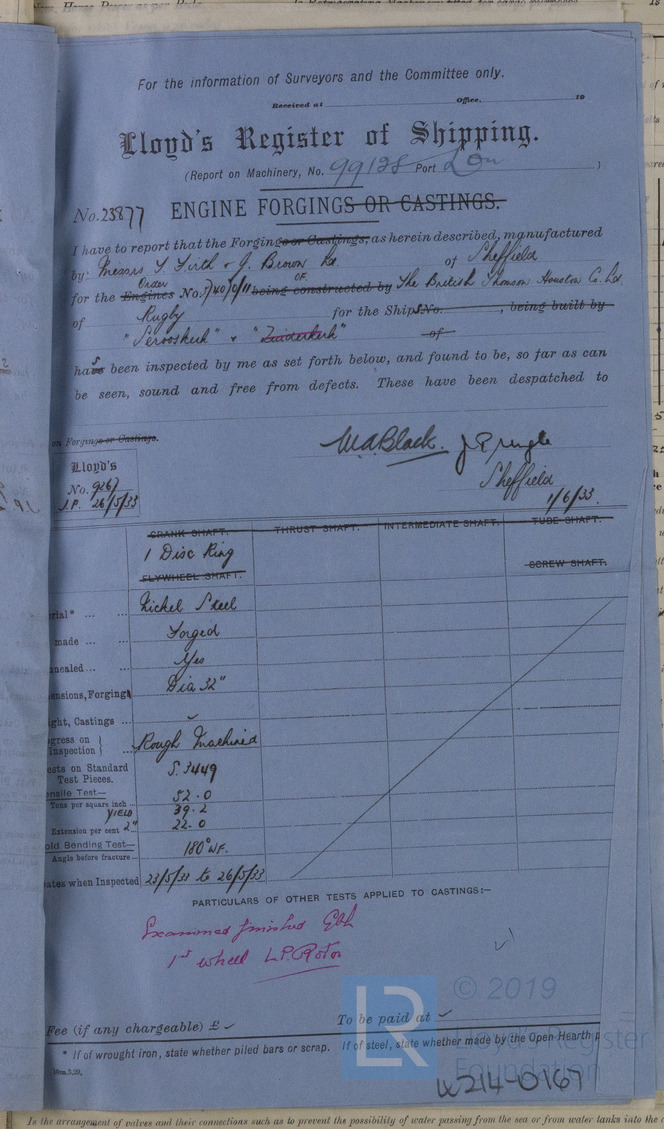 For the information of Surveyors and the Committee only.
Received at Office. 19
Lloyd's Register of Shipping.
(Report on Machinery, No. 99128 Port Lon )
No. 23877 ENGINE FORGINGS OR CASTINGS.
I have to report that the Forgings or Castings, as herein described, manufactured
by Messrs T. Firth & J. Brown Ld of Sheffield
Order OF
for the Engines No. 7/40/0/11 being constructed by The British Thomson Houston Co. Ld
of Rugby for the Ship S.No. , being built by
"Serooskerk" & "Zuiderkerk" of
has been inspected by me as set forth below, and found to be, so far as can
be seen, sound and free from defects. These have been despatched to
on Forgings or Castings.
W.A. Black. J. Pringle
Lloyd's
No. 9267
J.P. 26/5/33
Sheffield
1/6/33.
CRANK SHAFT. THRUST SHAFT. INTERMEDIATE SHAFT. TUBE SHAFT.
1 Disc Ring
FLYWHEEL SHAFT. SCREW SHAFT.
rial* ... ... Nickel Steel
made ... ... Forged
nnealed ... ... Yes
ensions, Forgings Dia 32"
ght, Castings ...
gress on
Inspection } ... Rough Machined
ests on Standard
Test Pieces. S.3449
ensile Test—
Tons per square inch ... 52.0
YIELD 39.2
Extension per cent 2" 22.0
old Bending Test—
Angle before fracture — 180° W.F.
ates when Inspected 23/5/33 to 26/5/33
PARTICULARS OF OTHER TESTS APPLIED TO CASTINGS:—
Examined finished
1st wheel L.P. Rotor
© 2019
Lloyd's Register
Foundation
Fee (if any chargeable) £ To be paid at
* If of wrought iron, state whether piled bars or scrap. If of steel, state whether made by the Open Hearth p
W214-0167
Is the arrangement of valves and their connections such as to prevent the possibility of water passing from the sea or from water tanks into the